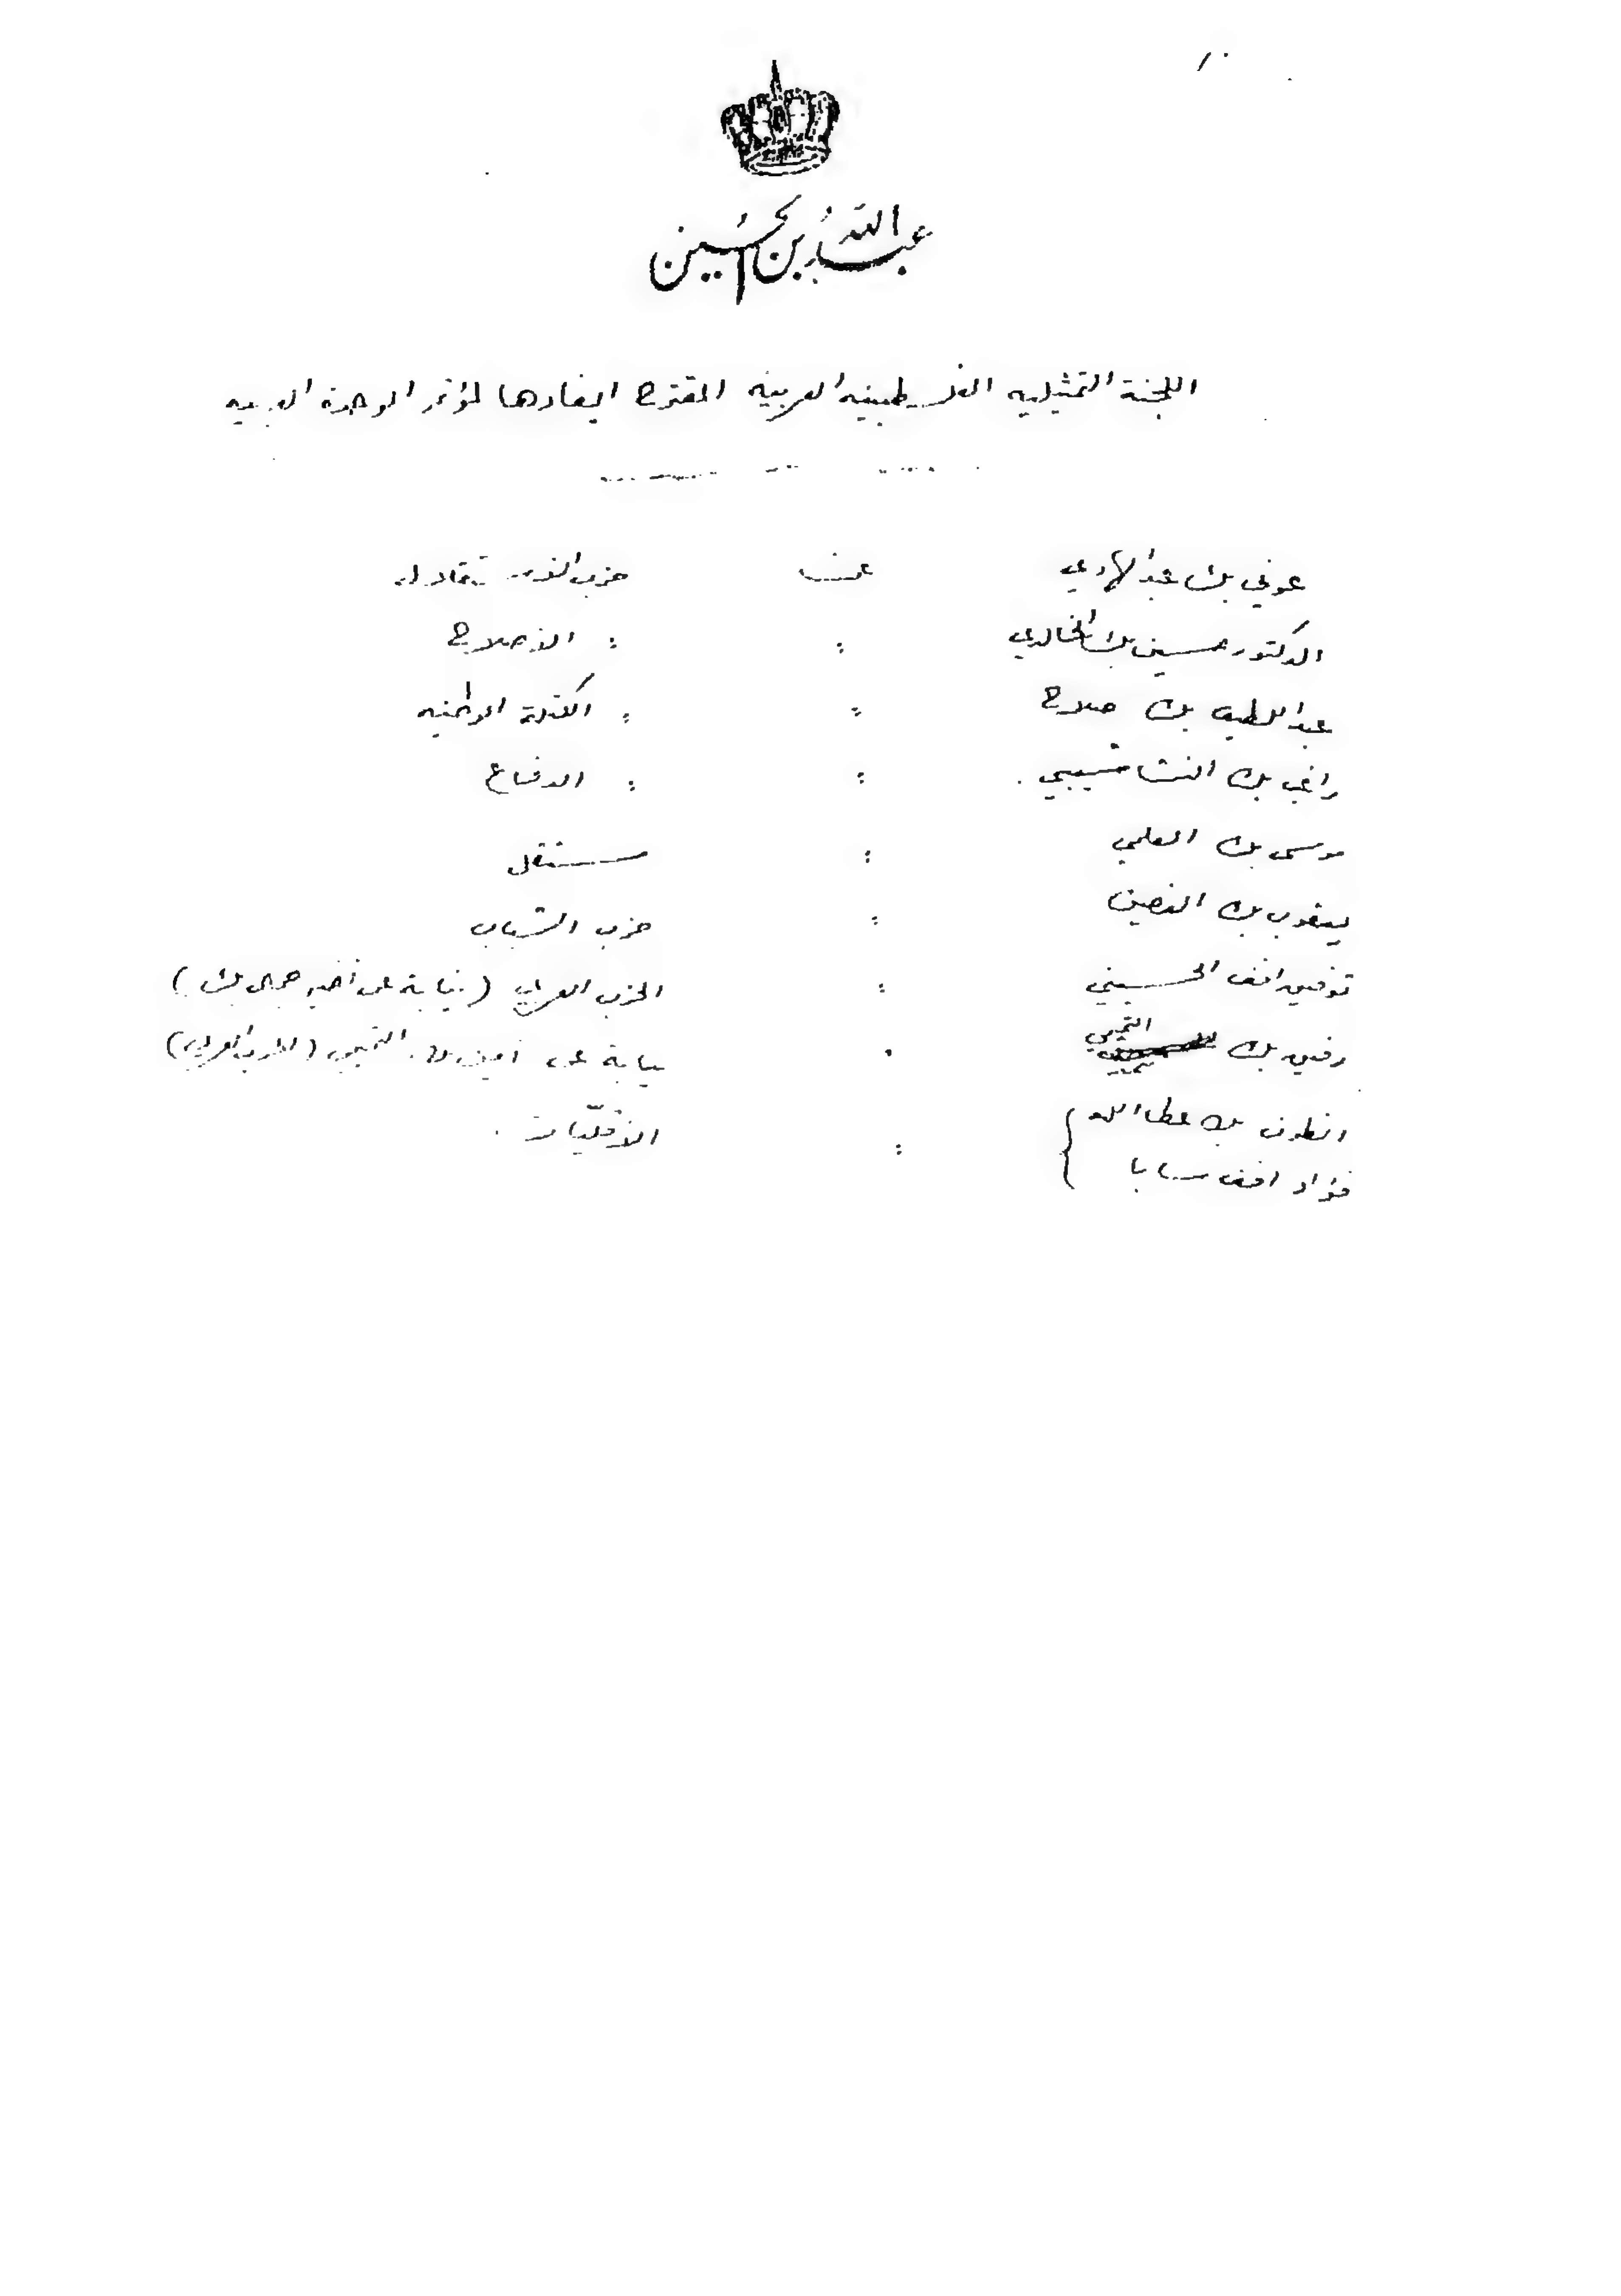 عبد الله بن الحسين
اللجنة التمثيليه الفلسطينيه العربيه المقترح ايفادها لمؤتمر الوحدة العربيه
عوني بك عبد الهادي عن حزب الاستقلال
الدكتور حسين بك الخالدي : : الاصلاح
عبد اللطيف بك صلاح : : الكتلة الوطنيه
راغب بك النشاشيبي : : الدفاع
موسى بك العلمي : مستقل
يعقوب بك الغصين : حزب الشباب
توفيق افند الحسيني : الحزب العربي (نيابة عن أخيه جمال بك)
رفيق بك التميمي نيابة عن أمين بك التميمي (الحزب العربي)
انطون بك عطا الله : الاقليّات
فؤاد افند سابا